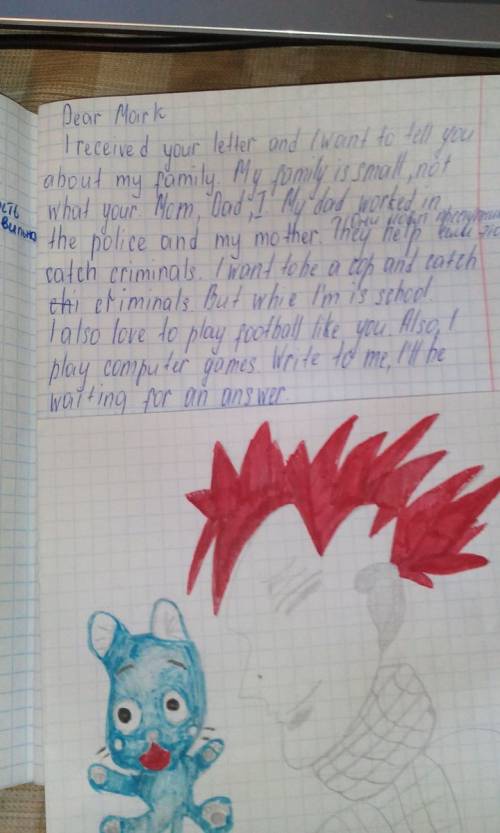 Dear Mark
I received your letter and I want to tell you
about my family. My family is small, not
what your. Mom, Dad, I. My dad worked in
the police and my mother. They help
catch criminals. I want to be a cop and catch
criminals. But whie I'm is school.
I also love to play football like you. Also, I
play computer games. Write to me, I'll be
waiting for an answer.